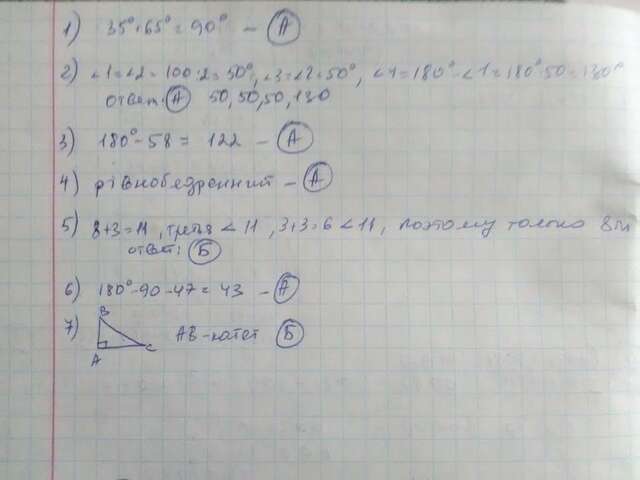 1) 35°+65° = 90° - А
2) ∠1=∠2=100:2=50°, ∠3=∠2=50°, ∠4=180°-∠1=180°-50=130°
ответ: А 50, 50, 50, 130
3) 180°-58 = 122 - А
4) рівнобедренний - А
5) 8+3=11, третья < 11, 3+3=6 < 11, поэтому только 8
ответ: Б
6) 180°-90-47=43 - А
7) B A C AB-катет Б